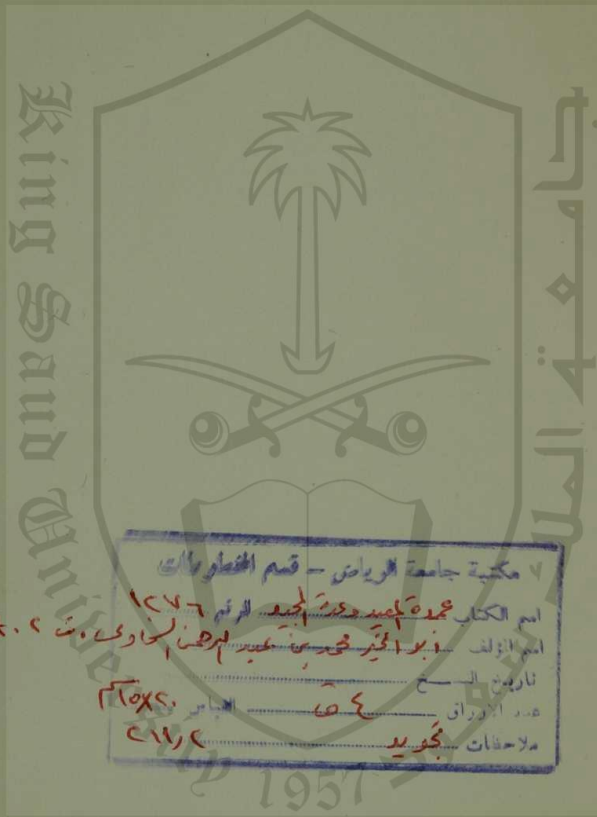 King Saud University
جامعة الملك
1957
مكتبة جامعة الرياض - قسم المخطوطات
اسم الكتاب عمدة المفيد وعدة المجيد الرقم ١٢٧٦
اسم المؤلف ابو الخير محمد بن عبد الرحمن السخاوي، ت ٩٠٢
تاريخ النسخ
عدد الأوراق ٤ ق القياس ٢٠×١٥ سم
ملاحظات تجويد ٢١١,٢